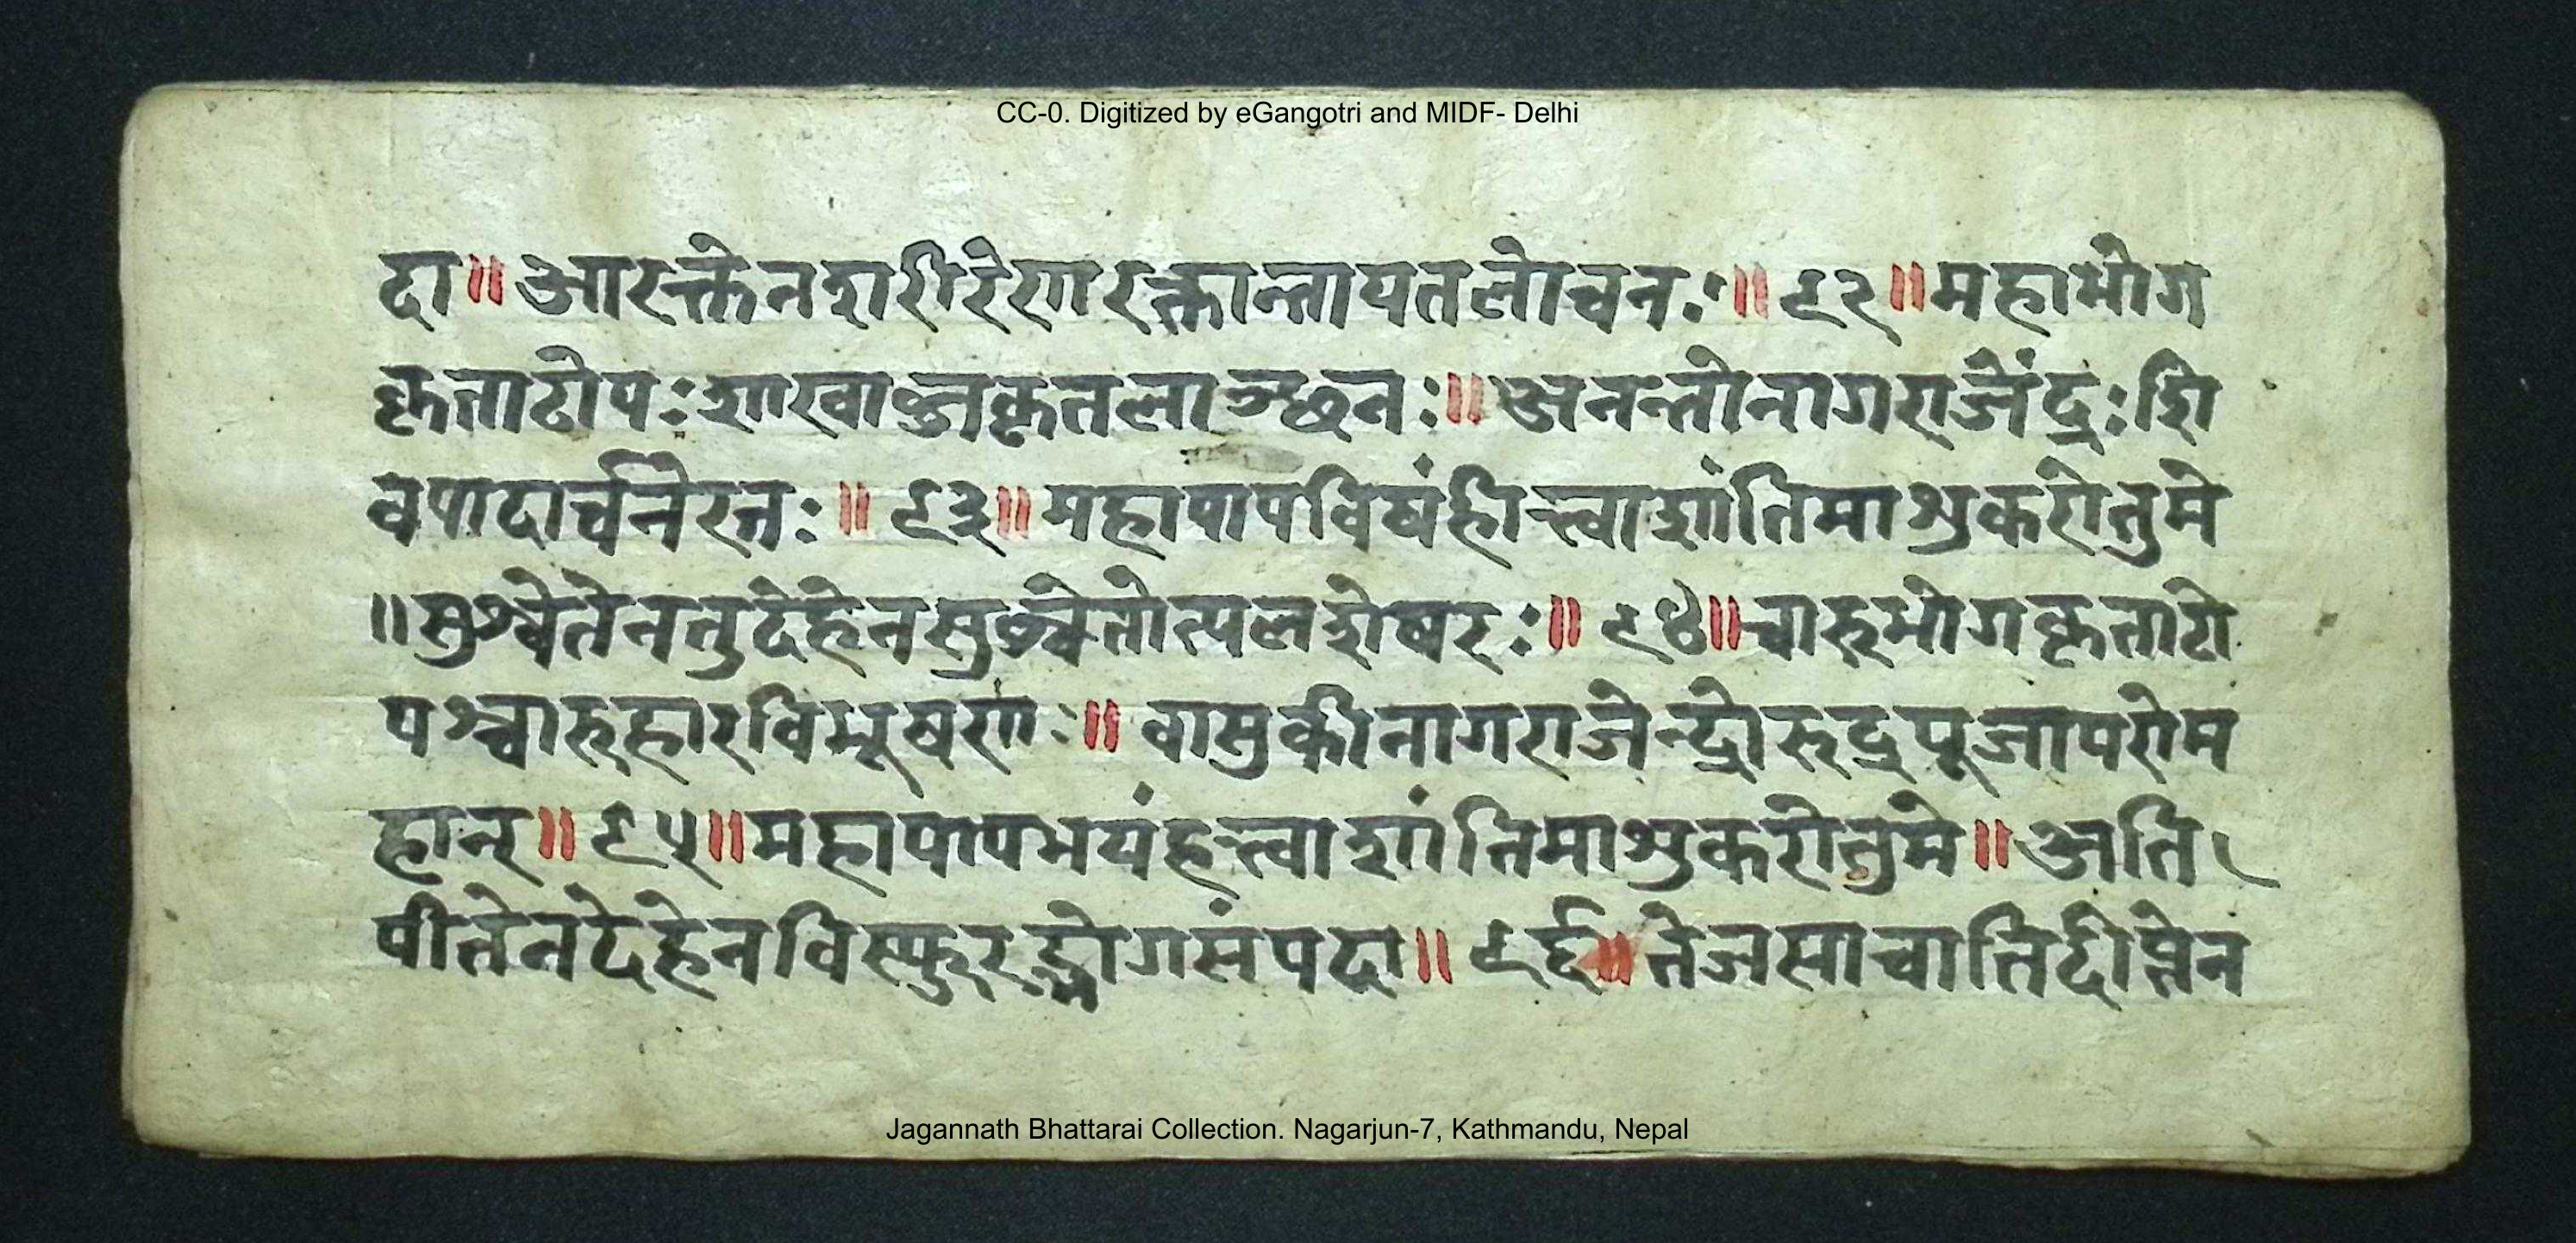 CC-0. Digitized by eGangotri and MIDF- Delhi
दा॥आरक्तेनशरीरेणारक्तान्तायतलोचनः॥९२॥महाभोग
कृताटोपःशाखाब्जकृतलाञ्छनः॥अनन्तोनागराजेंद्रःशि
वपादार्चनेरतः॥९३॥महापापविषंहीत्त्वाशांतिमाशुकरोतुमे
॥सुश्वेतेनतुदेहेनसुश्वेतोत्पलशेषरः॥९४॥चारुभोगकृताटो
पश्चारुहारविभूषणः॥वासुकीनागराजेन्द्रोरुद्रपूजापरोम
हान्॥९५॥महापापभयंहत्त्वाशांतिमाशुकरोतुमे॥अति
पीतेनदेहेनविस्फुरद्भोगसंपदा॥९६॥तेजसाचातिदीप्तेन
Jagannath Bhattarai Collection. Nagarjun-7, Kathmandu, Nepal